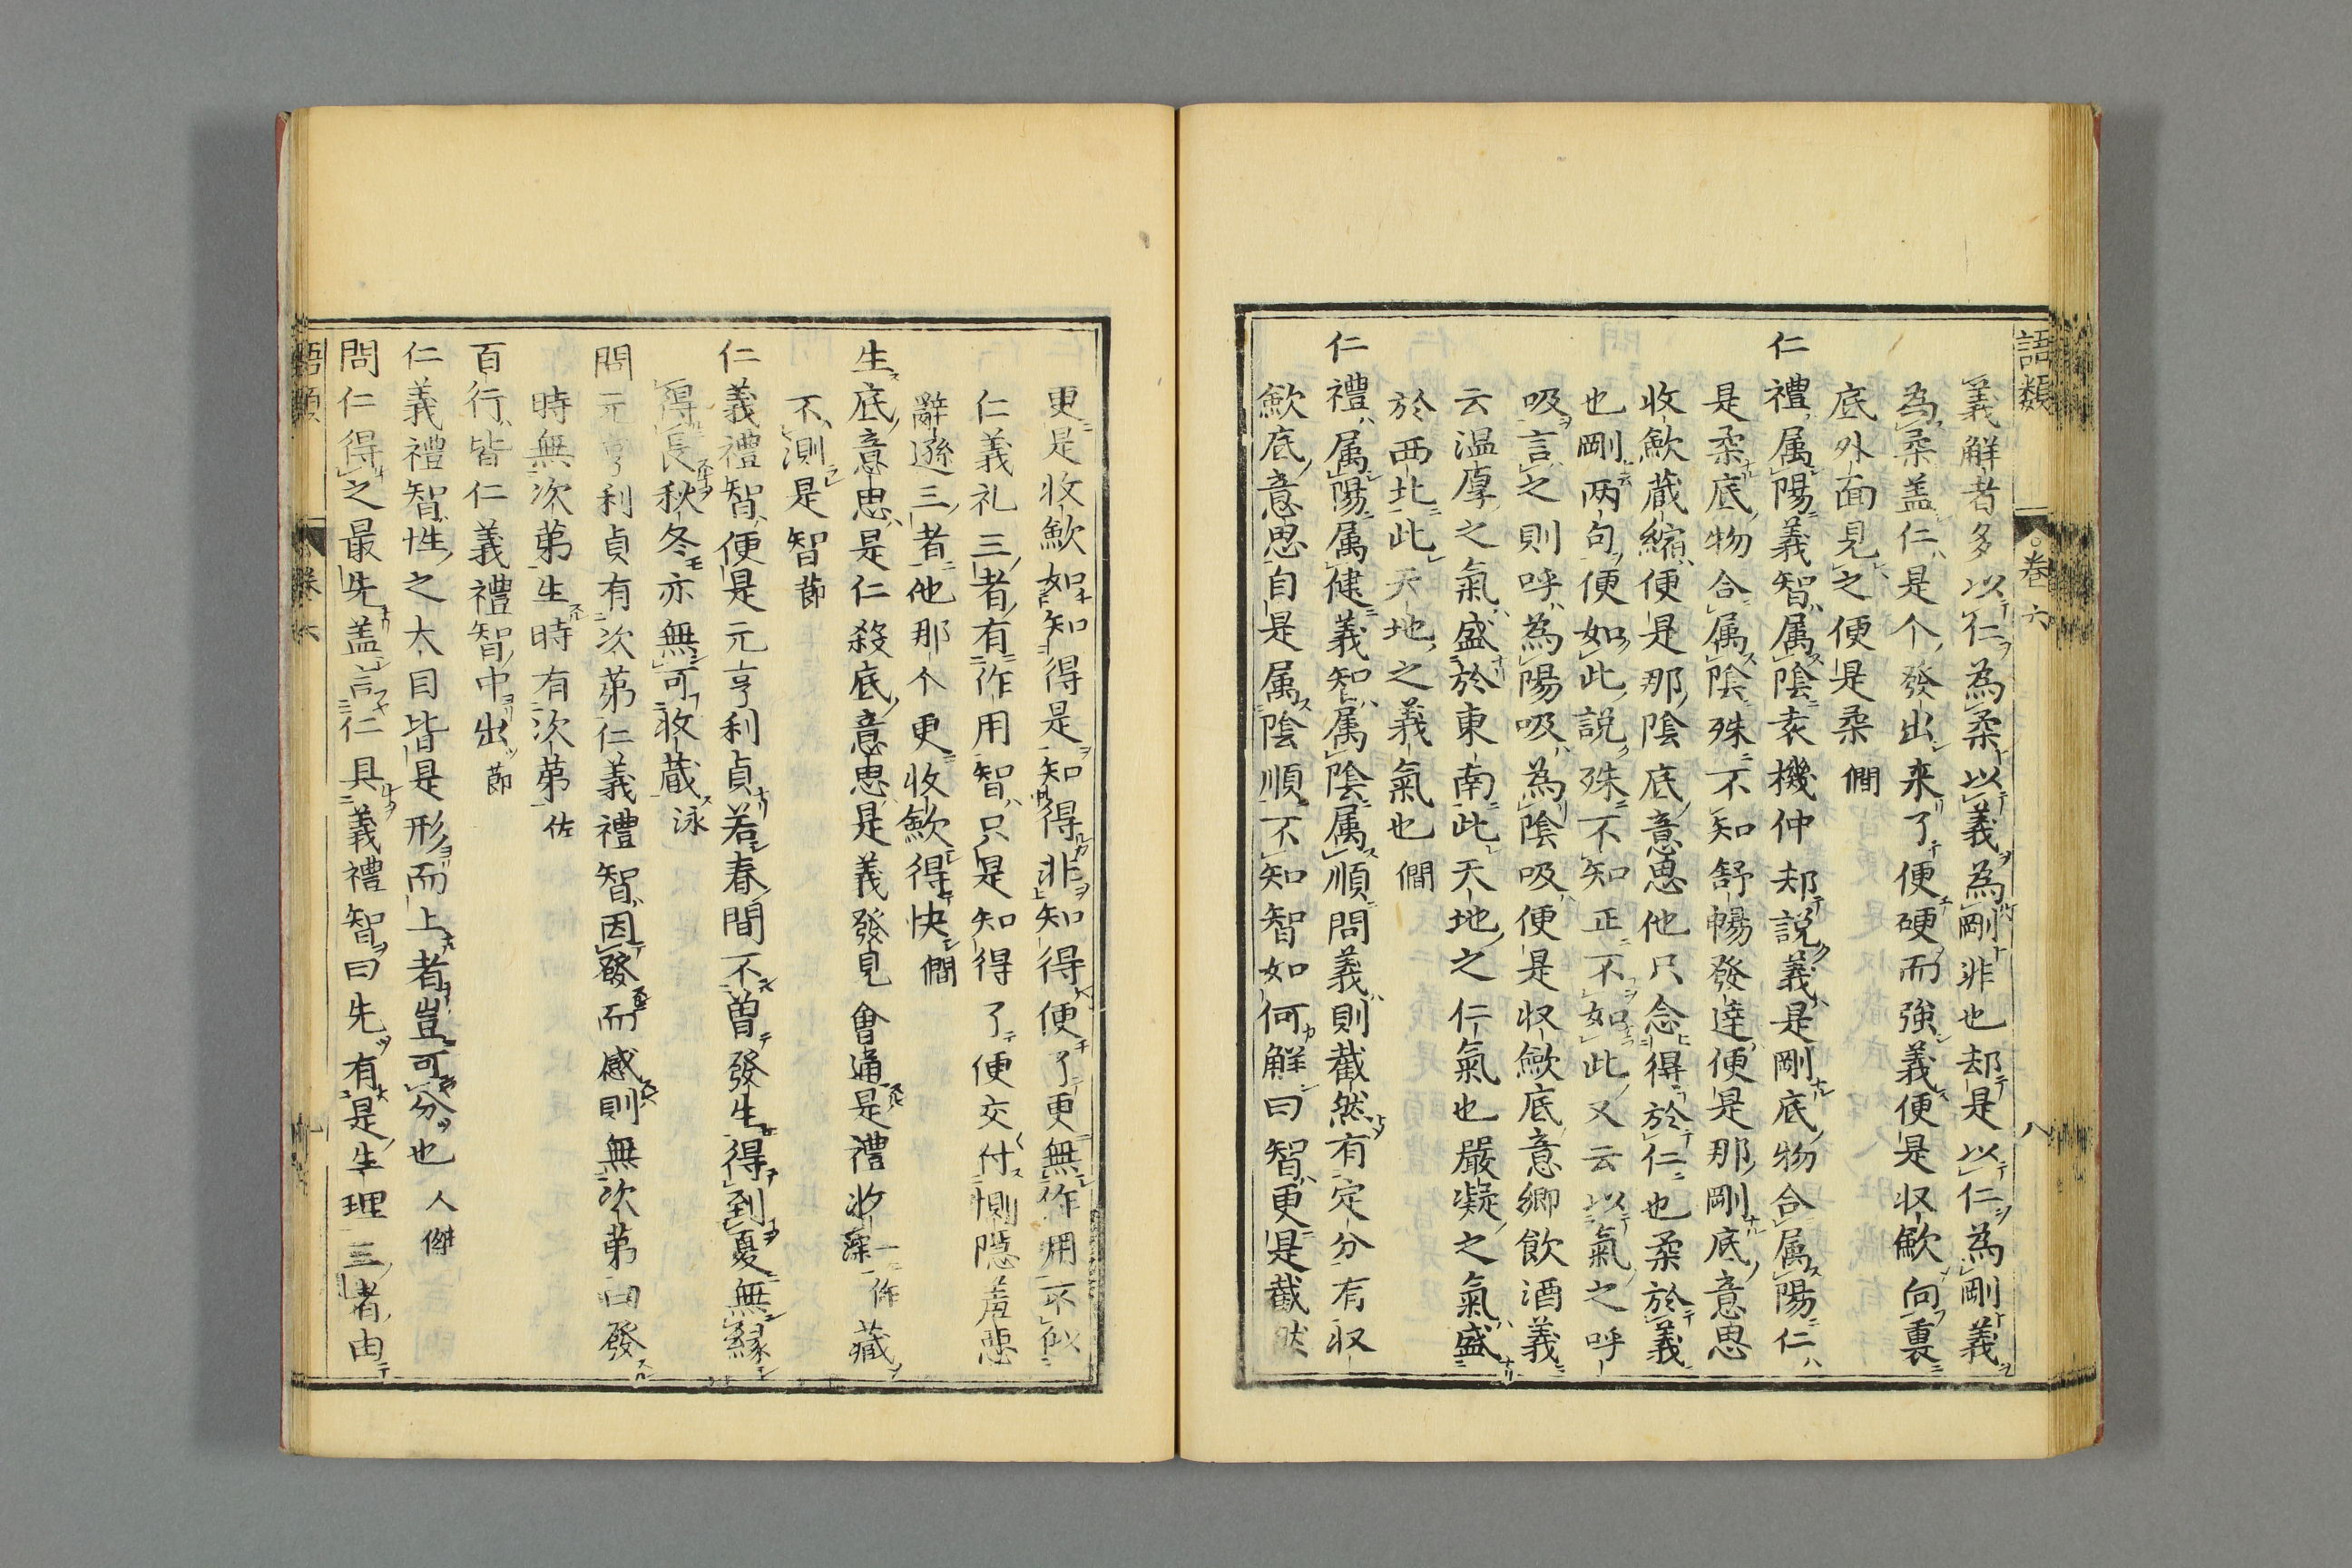 語類 卷六 八
義解者多以仁為柔以義為剛非也却是以仁為剛義
為柔盖仁是个發出来了便硬而強義便是収歛向裏
底外面見之便是柔 僩
仁禮属陽義智属陰袁機仲却説義是剛底物合属陽仁
是柔底物合属陰殊不知舒暢發達便是那剛底意思
收歛蔵縮便是那陰底意思他只念得於仁也柔於義
也剛兩句便如此説殊不知正不如此又云以氣之呼
吸言之則呼為陽吸為陰吸便是収歛底意郷飲酒義
云温厚之氣盛於東南此天地之仁氣也嚴凝之氣盛
於西北此天地之義氣也 僩
仁禮属陽属健義知属陰属順問義則截然有定分有収
歛底意思自是属陰順不知智如何解曰智更是截然
更是收歛如知得是知得非知得便了更無作用不似
仁義礼三者有作用智只是知得了便交付惻隱羞惡
辭遜三者他那个更收歛得快 僩
生底意思是仁殺底意思是義發見會通是禮收 一作深 藏
不測是智 節
仁義禮智便是元亨利貞若春間不曽發生得到夏無縁
得長秋冬亦無可收蔵 泳
問元亨利貞有次第仁義禮智因發而感則無次第曰發
時無次第生時有次第 佐
百行皆仁義禮智中出 節
仁義禮智性之大目皆是形而上者豈可分也 人傑
問仁得之最先盖言仁具義禮智曰先有是生理三者由
語類 卷六